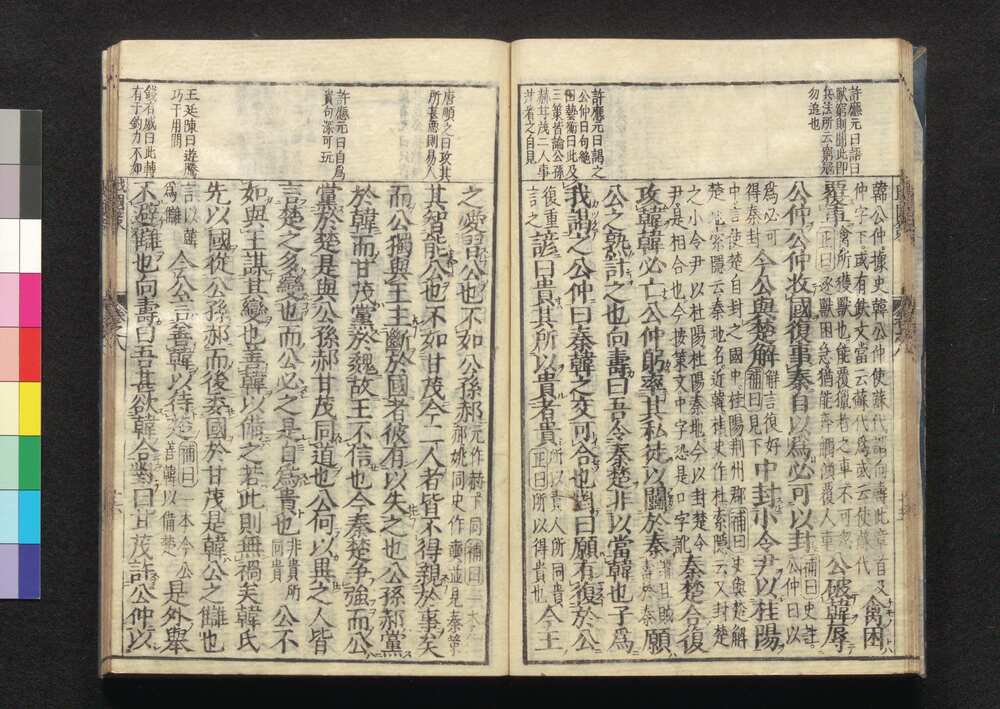 許應元曰語曰
獸窮則齧此即
兵法所云窮寇
勿追也
許應元曰謁之
公仲曰句絶
田藝蘅曰此及
三策皆論公孫
赫甘茂二人事
并看之自見
韓公仲據史韓公仲使蘇代謂向壽此章首又
仲字下或有缺文當云蘇代爲或云使蘇代 禽困
覆車 禽所獲獸也能覆獵者之車不可忽
正曰逐獸困急猶能奔觸傾覆人車 公破韓辱
公仲公仲收國復事秦自以爲必可以封 補曰史注公仲曰以
爲必可得秦封 今公與楚解 解言復好補曰見下 中封小令尹以桂陽
中言使楚自封之國中桂陽荆州郡補曰史與楚解
索隱云秦地名近韓桂史作杜索隱云又封楚
之小令尹以杜陽杜陽秦地今以封楚令
尹是相合也今按策文中字恐是口字訛 秦楚合復
攻韓韓必亡公仲躬率其私徒以鬭於秦 願
公之熟計之也向壽曰吾合秦楚非以當韓也子爲
我謁之公仲曰秦韓之交可合也對曰願有復於公
復重言之 諺曰貴其所以貴者貴 所以貴人所同貴正曰所以得所貴也 今王
唐順之曰攻其
所甚處則易入
許應元曰自爲
貴句深可玩
王廷陳曰遊騰
巧于用間
錢右威曰此轉
有千鈞力不如
之愛習公也不如公孫郝 元作赫下同補曰
郝姚同史作奭並見秦策
其智能公也不如甘茂今二人者皆不得親於事矣
而公獨與王主斷於國者彼有以失之也公孫郝黨
於韓而甘茂黨於魏故王不信也今秦楚爭強而公
黨於楚是與公孫郝甘茂同道也公何以異之人皆
言楚之多變也而公必之是自爲貴也 非貴所同貴 公不
如與王謀其變也善韓以備之若此則無禍矣韓氏
先以國從公孫郝而後委國於甘茂是韓公之讎也
言以韓爲讎 今公言善韓以待 補曰一本今公言善韓以備楚 是外舉
不避讎也向壽曰吾甚欲韓合對曰甘茂許公仲以